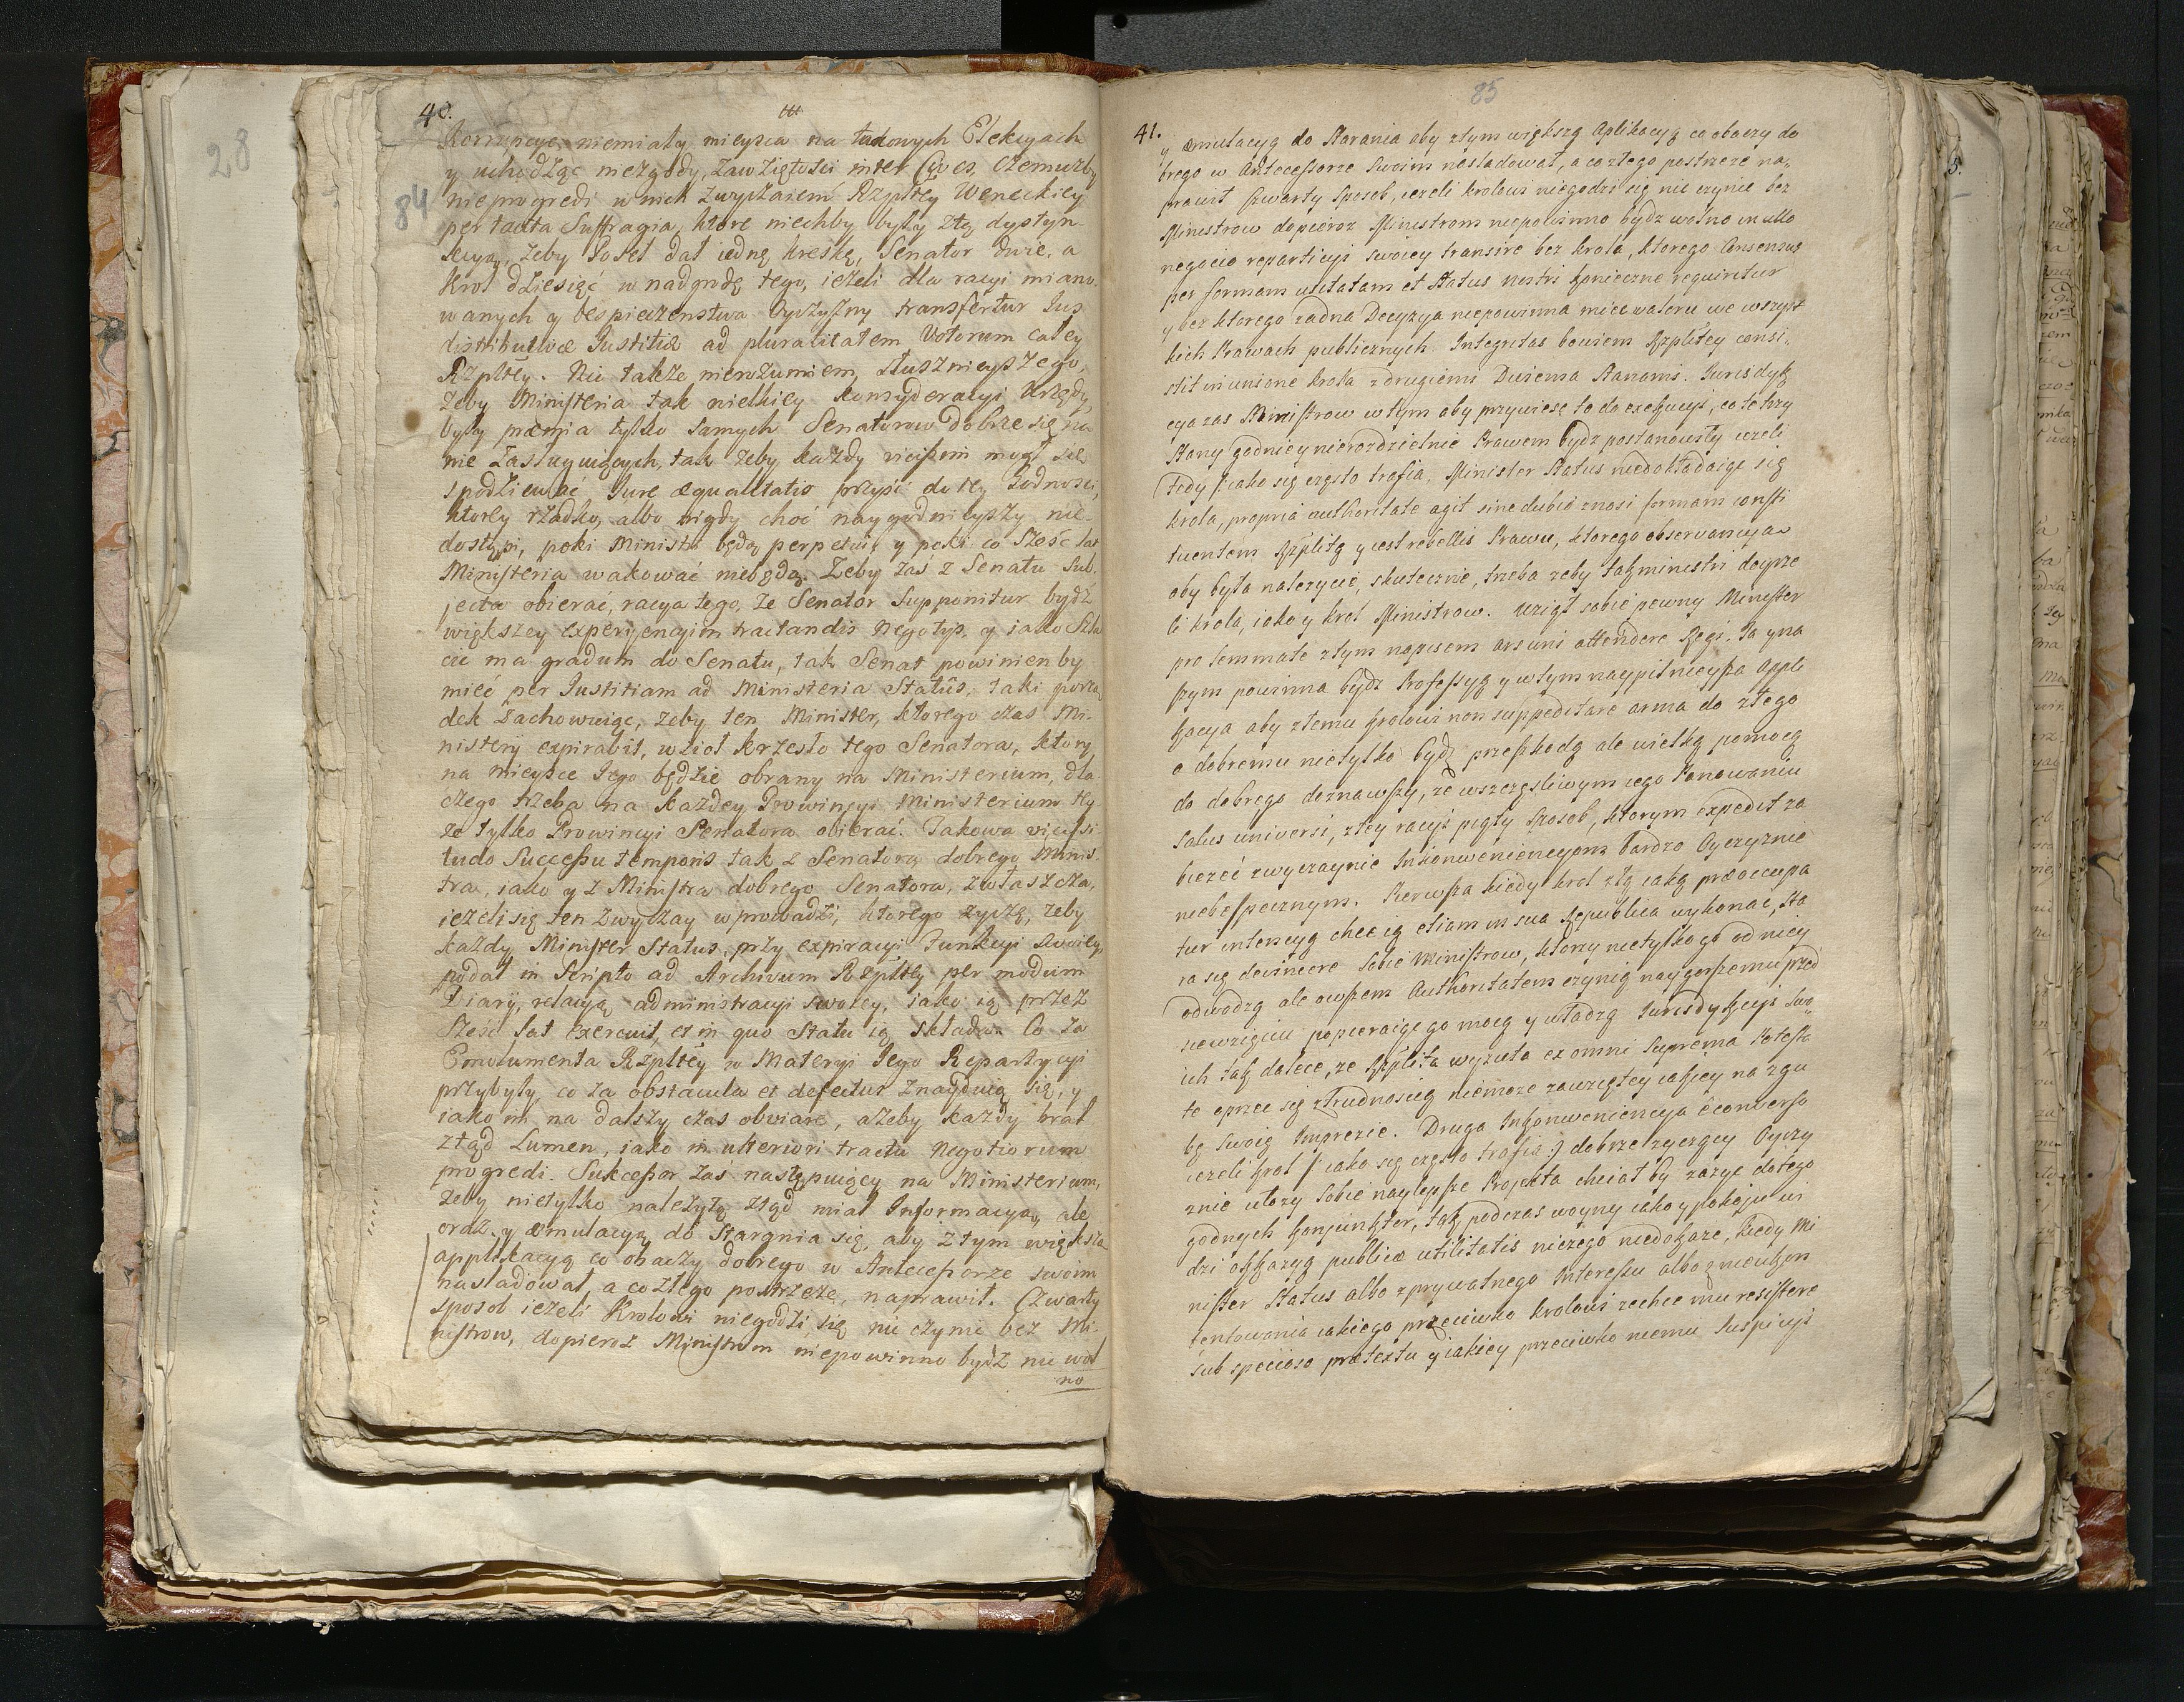 28
40.
84
Korrupcye niemiały mieysca na takowych Elekcyach
y uchodząc niezgody, zawziętości inter Cives, czemużby
nieprogredi w nich zwyczaiem Rzpltey Weneckiey
per tacita Suffragia, ktore niechby były z tą dystyn-
kcyą, żeby Poseł dał iedną kreskę, Senator dwie, a
Krol dziesięć w nadgrodę tego, ieżeli dla racyi miano-
wanych y bespieczenstwa Oyczyzny transfertur Jus
distributivæ Justitiæ ad pluralitatem Votorum całey
Rzpltey. Nic także nierozumiem, słusznieyszego,
żeby Ministeria tak wielkiey konsyderacyi Urzędy,
były præmia tylko samych Senatorow dobrze się na
nie zasługuiących, tak żeby każdy vicissim mogł się
spodziewać Jure æqualitatis przyść do tey Godnosci,
ktorey rzadko, albo nigdy choć naygodnieyszy nie-
dostąpi, poki Ministri będą perpetui, y poki co Sześć lat
Ministeria wakować niebędą. Żeby zas z Senatu Sub-
jecta obierać, racya tego, że Senator Supponitur bydź
większey experyencyi in tractandis Negotys, y iako Szla
cic ma gradum do Senatu, tak Senat powinien by
mieć per Justitiam ad Ministeria Statûs, taki porzą
dek zachowuiąc, żeby ten Minister, ktorego czas Mi-
nistery expirabit, wzioł krzesło tego Senatora, ktory
na mieysce Jego będzie obrany na Ministerium, dla
czego trzeba na każdey Prowincyi Ministerium tey
że tylko Prowincyi Senatora obierać. Takowa vicissi
tudo Successu temporis tak z Senatora dobrego Minis-
tra, iako y z Ministra dobrego Senatora, zwłaszcza,
ieżeli się ten zwyczay wprowadzi, ktorego życzę, żeby
każdy Minister Status, przy expiracyi Funkcyi swoiey,
podał in Scripto ad Archivum Rzpltey per modum
Diarij, relacyą administracyi swoiey, iako ią przez
Sześć lat exercuit, et in quo Statu ią składa. Co za
Emolumenta Rzpltey w Materyi Jego Repartycyi
przybyły, co za obstacula et defectus znayduią się, y
iako im na dalszy czas obviare, ażeby każdy brał
ztąd Lumen, iako in ulteriori tractu Negotiorum
progredi. Sukcessor zas następuiący na Ministerium,
żeby nietylko należytą ztąd miał Informacyą, ale
oraz y æmulacyą do Starania się, aby z tym większą
applikacyą co obaczy dobrego w Antecessorze swoim
nasladował, a co złego postrzeże, naprawił. Czwarty
sposob ieżeli Krolowi niegodzi się nic czynić bez Mi-
nistrow, dopieroż Ministrom niepowinno bydź nic wol
no
85
41.
y æmulacyą do starania aby ztym większą Aplikacyą co obaczy do
brego w Antecessorze Swoim nasladował, a co złego postrzeże na,
prawił Czwarty Sposob, ieżeli krolowi niegodzi się nic czynić bez
Ministrow dopieroż Ministrom niepowinno bydź wolno in ullo
negocio repartycyi swoiey transire bez krola, ktorego Consensus
per formam usitatam et Status nostri koniecznie requiritur
y bez ktorego żadna Decyzya niepowinna mieć waloru we wszyst
kich Prawach publicznych. Integritas bowiem Rzplitey consi,
stit in unione krola z drugiemi Dwiema Stanami. Jurisdyk
cya zas Ministrow w tym aby przywiesć to do exekucyi, co te trzy
Stany zgodnie y nierozdzielnie Prawem bydź postanowiły ieżeli
Tedy /: iako się często trafia, Minister Status niedokładaiąc się
krola, propria authoritate agit sine dubio znosi formam consti
tuentem Rzplitą y iest rebellis Prawu, ktorego obserwancya
aby była należycie, skutecznie, trzeba żeby tak ministri doyrze
li krola, iako y krol Ministrow. Wziął sobie pewny Minister
pro lemmate z tym napisem ars uni attendere Regi. Ta y na
szym powinna bydź Professyą y w tym naypilnieysza appli
kacya aby złemu krolowi non suppeditare arma do złego
a dobremu nietylko bydź przeszkodą ale wielką pomocą
do dobrego doznawszy, że wszczęsliwym iego Panowaniu
Salus universi, z tey racyi piąty Sposob, ktorym expedit za
bieżeć zwyczaynie Inkonweniencyom bardzo Oyczyznie
niebespiecznym. Pierwsza kiedy krol złą iaką præoccupa
tur intencyą chce ią etiam in sua Republica wykonać, sta
ra się devincere Sobie Ministrow, ktorzy nietylko go od niey
odwodzą ale owszem Authoritatem czynią naygorszemu przed
siewzięciu popieraiąc go mocą y władzą Jurisdykcyi swo,
ich tak dalece, że Rzplita wyzuta ex omni Suprema Potesta
te oprzec się z trudnoscią niemoże zawziętey iakiey na zgu
bę swoią Imprezie. Druga Inkonweniencya è converso
ieżeli krol /: iako się często trafia :/ dobrze życzący Oyczy
znie ułoży Sobie naylepsze Projekta chciałby zażyć do tego
godnych konjunktur, tak podczas woyny iako y pokoju wi
dzi okkazyą publicæ utilitatis niczego niedokaże, kiedy Mi
nister Status albo z prywatnego Interessu albo z nieukon
tentowania iakiego przeciwko krolowi zechce mu resistere
sub specioso prætextu y iakiey przeciwko niemu Suspicyi